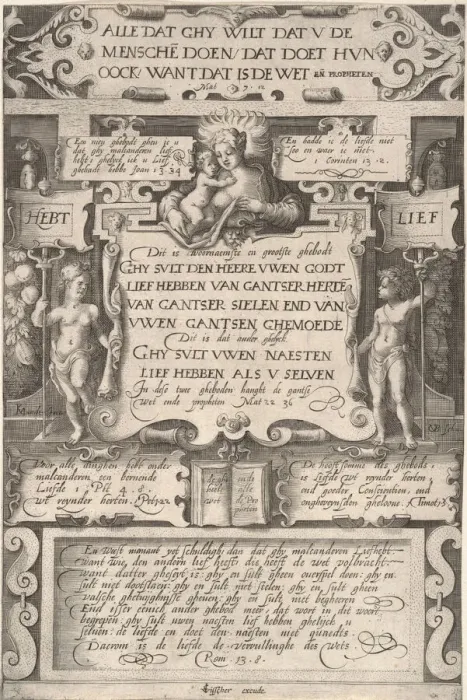 ALLE DAT GHY WILT DAT V DE
MENSCHĒ DOEN/ DAT DOET HVN
OOCK/ WANT DAT IS DE WET EÑ PROPHETEN
Mat 7. 12
Een niew ghebodt gheve ic u
dat ghy malcanderen lief
hebt: ghelyck ick u Lief
ghehadt hebbe Joan 13 34
En hadde ic de liefde niet
soo en waer ic niet.
1 Corinten 13. 2.
HEBT
LIEF
Dit is voornaemste en grootste ghebodt
GHY SVLT DEN HEERE VWEN GODT
LIEF HEBBEN VAN GANTSER HERTE
VAN GANTSER SIELEN, END VAN
VWEN GANTSEN GHEMOEDE
Dit is dat ander ghelyck.
GHY SVLT VWEN NAESTEN
LIEF HEBBEN ALS V SELVEN
In dese twe gheboden hanght de gantse
Wet ende propheten Mat 22 36
Voor alle dinghen hebt onder
malcanderen een bernende
Liefde 1 Pet 4. 8.
wt reynder herten. 1 Pet 1. 22
wet
De hooftsomme des ghebods,
is Liefde wt reynder herten,
end goeder Conscientien, end
ongheveynsden gheloove. 1 Timot 1 5
En Weest niemant yet schuldigh dan dat ghy malcanderen Liefhebt.
want wie den andern lief heeft die heeft de wet volbracht.
want datter gheseyt is: ghy en sult gheen overspel doen: ghy en
sult niet dootslaen: ghy en sult niet stelen: ghy en sult gheen
valsche ghetuyghnisse gheven: ghy en sult niet begheeren
End isser eenich ander ghebod meer, dat wort in dit woort
begrepen: ghy sult uwen naesten lief hebben ghelyck u
selven: de liefde en doet den naesten niet quaedts.
Daerom is de liefde de vervullinghe des Wets.
Rom. 13. 8.
Visscher excude.